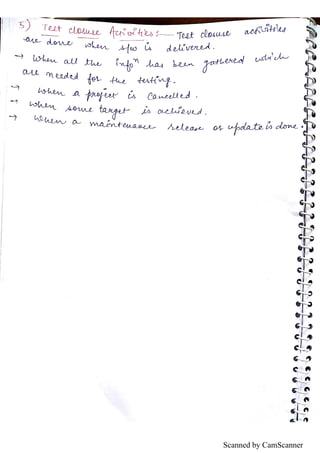 5) Test closure Activities:— Test closure activities
are done when s/w is delivered.
→ When all the infoⁿ has been gathered which
are needed for the testing.
→ When a project is cancelled.
→ When some target is achieved.
→ When a maintenance release or update is done.
Scanned by CamScanner